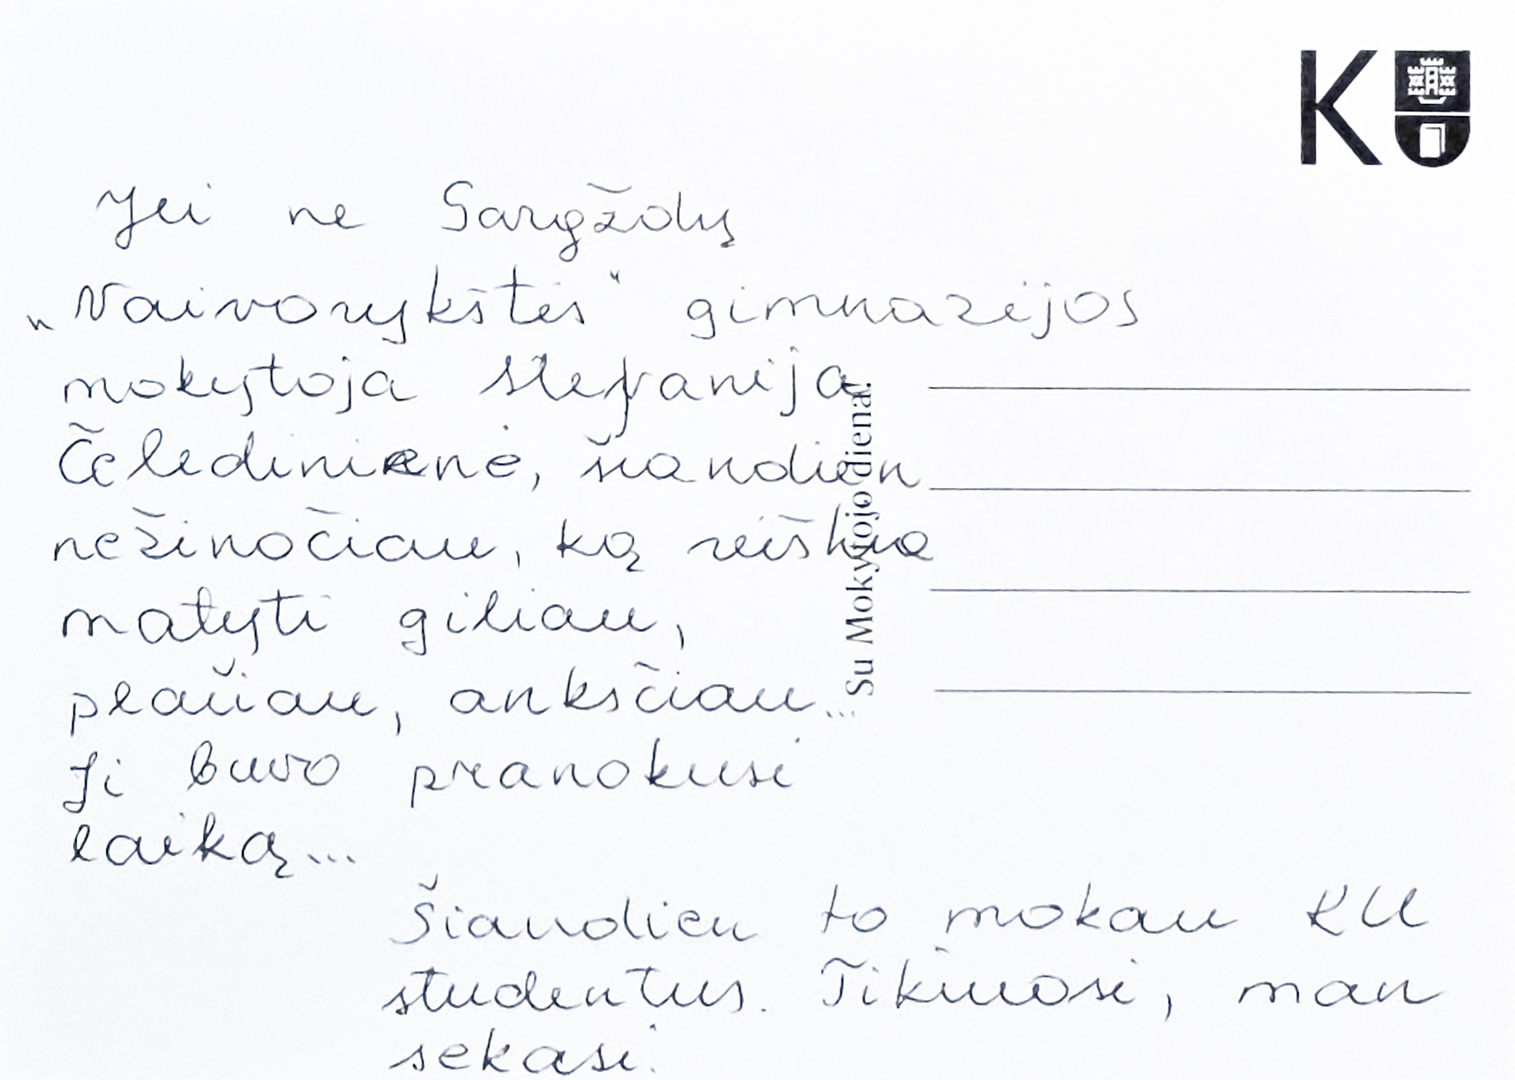 K
Jei ne Gargždų
„Vaivorykštės“ gimnazijos
mokytoja Stefanija
Čeledinienė, šiandien
nežinočiau, ką reiškia
matyti giliau,
plačiau, anksčiau...
Ji buvo pranokusi
laiką...
Šiandien to mokau KU
studentus. Tikiuosi, man
sekasi.
Su Mokytojo diena!